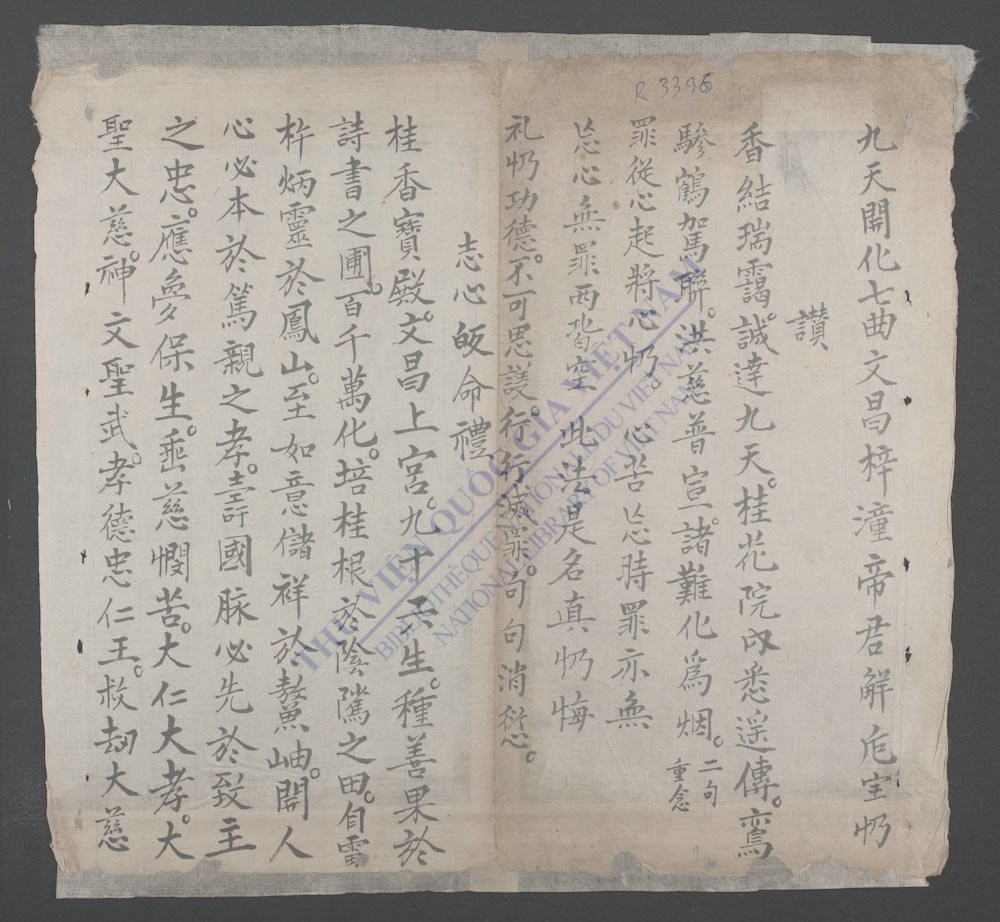 R 3395
九天開化七曲文昌梓潼帝君解厄宝忉
讃
香結瑞靄。誠達九天。桂花院内悉遥傳。鸞
驂鶴駕聯。洪慈普宣。諸難化為烟。二句重念
罪從心起將心忉。心若忘時罪亦無
忘心無罪兩皆空 此法是名真忉悔
礼忉功德。不可思議。行行滅罪。句句消愆。
志心皈命禮
桂香寶殿。文昌上宮。九十天生。種善果於
詩書之圃。百千萬化。培桂根於陰隲之田。自雷
杵炳靈於鳳山。至如意儲祥於鰲岫。開人
心必本於篤親之孝。壽國脉必先於致主
之忠。應夢保生。垂慈憫苦。大仁大孝。大
聖大慈。神文聖武。孝德忠仁王。救刼大慈
THƯ VIỆN QUỐC GIA VIỆT NAM
BIBLIOTHÈQUE NATIONALE DU VIET NAM
NATIONAL LIBRARY OF VIET NAM